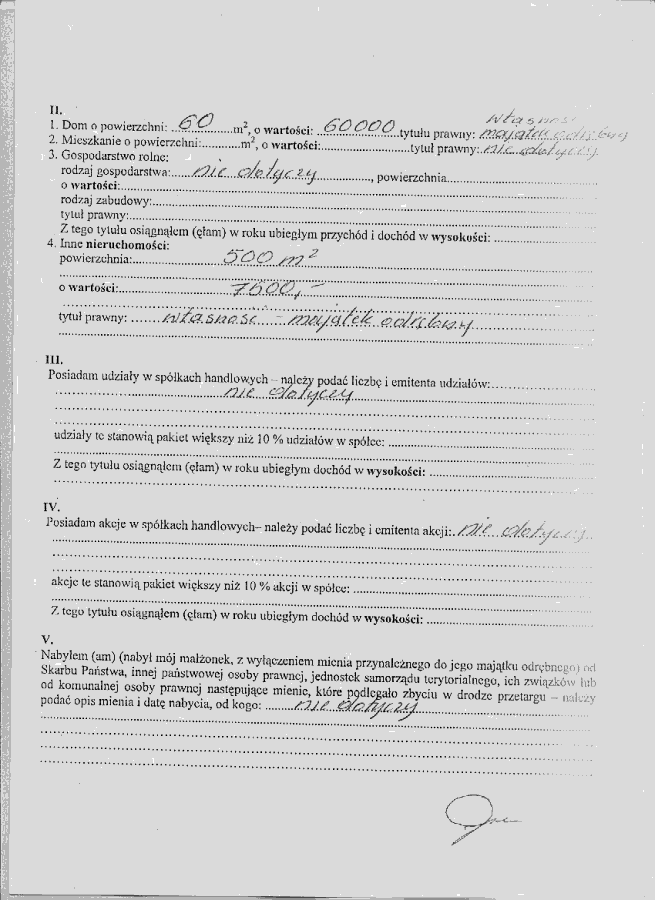 II.
1. Dom o powierzchni: 60 m², o wartości: 60000 tytułu prawny: własność majątek odrębny
2. Mieszkanie o powierzchni: m², o wartości: tytuł prawny: nie dotyczy
3. Gospodarstwo rolne:
rodzaj gospodarstwa: nie dotyczy, powierzchnia
o wartości:
rodzaj zabudowy:
tytuł prawny:
Z tego tytułu osiągnąłem (ęłam) w roku ubiegłym przychód i dochód w wysokości:
4. Inne nieruchomości:
powierzchnia: 500 m²
o wartości: 7500,-
tytuł prawny: własność - majątek odrębny
III.
Posiadam udziały w spółkach handlowych – należy podać liczbę i emitenta udziałów:
nie dotyczy
udziały te stanowią pakiet większy niż 10 % udziałów w spółce:
Z tego tytułu osiągnąłem (ęłam) w roku ubiegłym dochód w wysokości:
IV.
Posiadam akcje w spółkach handlowych– należy podać liczbę i emitenta akcji: nie dotyczy
akcje te stanowią pakiet większy niż 10 % akcji w spółce:
Z tego tytułu osiągnąłem (ęłam) w roku ubiegłym dochód w wysokości:
V.
Nabyłem (am) (nabył mój małżonek, z wyłączeniem mienia przynależnego do jego majątku odrębnego) od
Skarbu Państwa, innej państwowej osoby prawnej, jednostek samorządu terytorialnego, ich związków lub
od komunalnej osoby prawnej następujące mienie, które podlegało zbyciu w drodze przetargu – należy
podać opis mienia i datę nabycia, od kogo: nie dotyczy